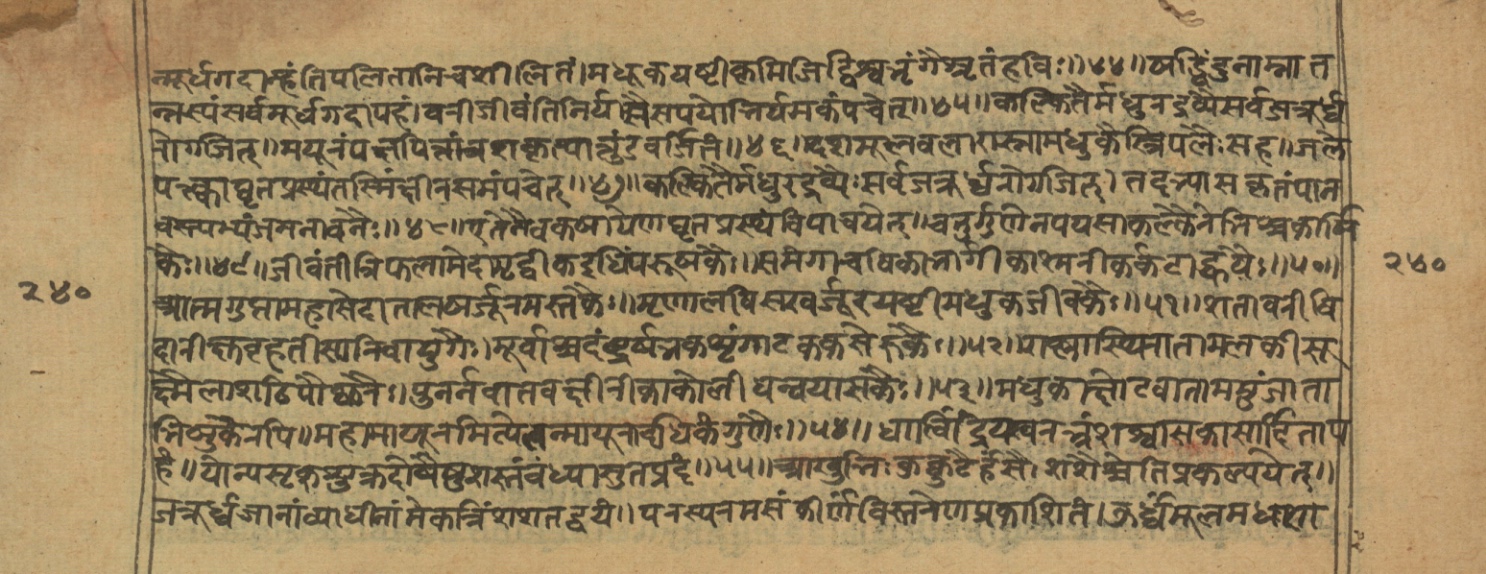 न्मूर्धगदान्हंतिपलितानिचशीलितं।मधूकयष्टीकृमिजिद्विश्वभृंगैशृतंहविः॥४४॥षड्बिंदुनाम्नात
न्नस्यंसर्वमूर्धगदापहं।वरीजीवंतिनिर्यासैसपयोभिर्यमकंपचेत्॥४५॥कल्कितैर्मधुरद्रव्यैसर्वजत्रूर्ध्व
रोगजित्॥मयूरंपक्षपित्तांत्रशकृत्पात्तुंडवर्जितं॥४६॥दशमूलबलारास्नामधुकैस्त्रिपलैःसह॥जले
पक्त्वाघृतप्रस्थंतस्मिंक्षीरसमंपचेत्॥४७॥कल्कितैर्मधुरद्रव्यैःसर्वजत्रूर्ध्वरोगजित्।तदभ्यासकृतंपान
वस्त्यभ्यंजननावनैः॥४८॥एतेनैवकषायेणघृतप्रस्थंविपाचयेत्॥चतुर्गुणेनपयसाकल्कैरेभिश्चकार्षि
कैः॥४९॥जीवंतीत्रिफलामेदामृद्वीकर्द्धिपरूषकैः॥समंगाचविकाभार्गीकाश्मरीकर्कटाह्वयैः॥५०॥
आत्मगुप्तामहामेदातालखर्जूरमस्तकैः॥मृणालबिसखर्जूरयष्टीमधुकजीवकैः॥५१॥शतावरीवि
दारीक्षुबृहतीसारिवायुगैः।मूर्वाश्वदंष्ट्रर्षभकशृंगाटककसेरुकैः॥५२॥रास्नास्थिरातामलकीसू
क्ष्मैलाशठिपौष्करैः॥पुनर्नवातवक्षीरीकाकोलीधन्वयासकैः॥५३॥मधुकाक्षोटवाताममुंजाता
भिषुकैरपि॥महामायूरमित्येतन्मायूरादधिकंगुणैः॥५४॥धात्विंद्रियस्वरभ्रंशश्वासकासार्दिताप
हं॥योन्यसृक्शुक्रदोषेषुशस्तंवंध्यासुतप्रदं॥५५॥आखुभिःकुक्कुटैर्हंसैःशशैश्चेतिप्रकल्पयेत्॥
जत्रूर्ध्वजानांव्याधीनांमेकत्रिंशशतद्वयं॥परस्परमसंकीर्णंविस्तरेणप्रकाशितं।ऊर्ध्वमूलमधःशा
२४०
२४०